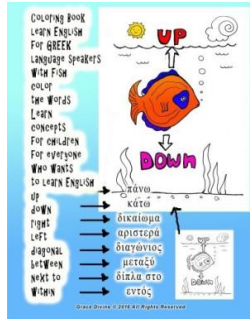 Coloring Book
Learn English
For GREEK
Language Speakers
With Fish
color
the Words
Learn
concepts
For children
For everyone
Who Wants
to Learn English
up
down
right
left
diagonal
between
next to
within
UP
DOWN
πάνω
κάτω
δικαίωμα
αριστερά
διαγώνιος
μεταξύ
δίπλα στο
εντός
UP
DOWN
Grace Divine © 2016 All Rights Reserved